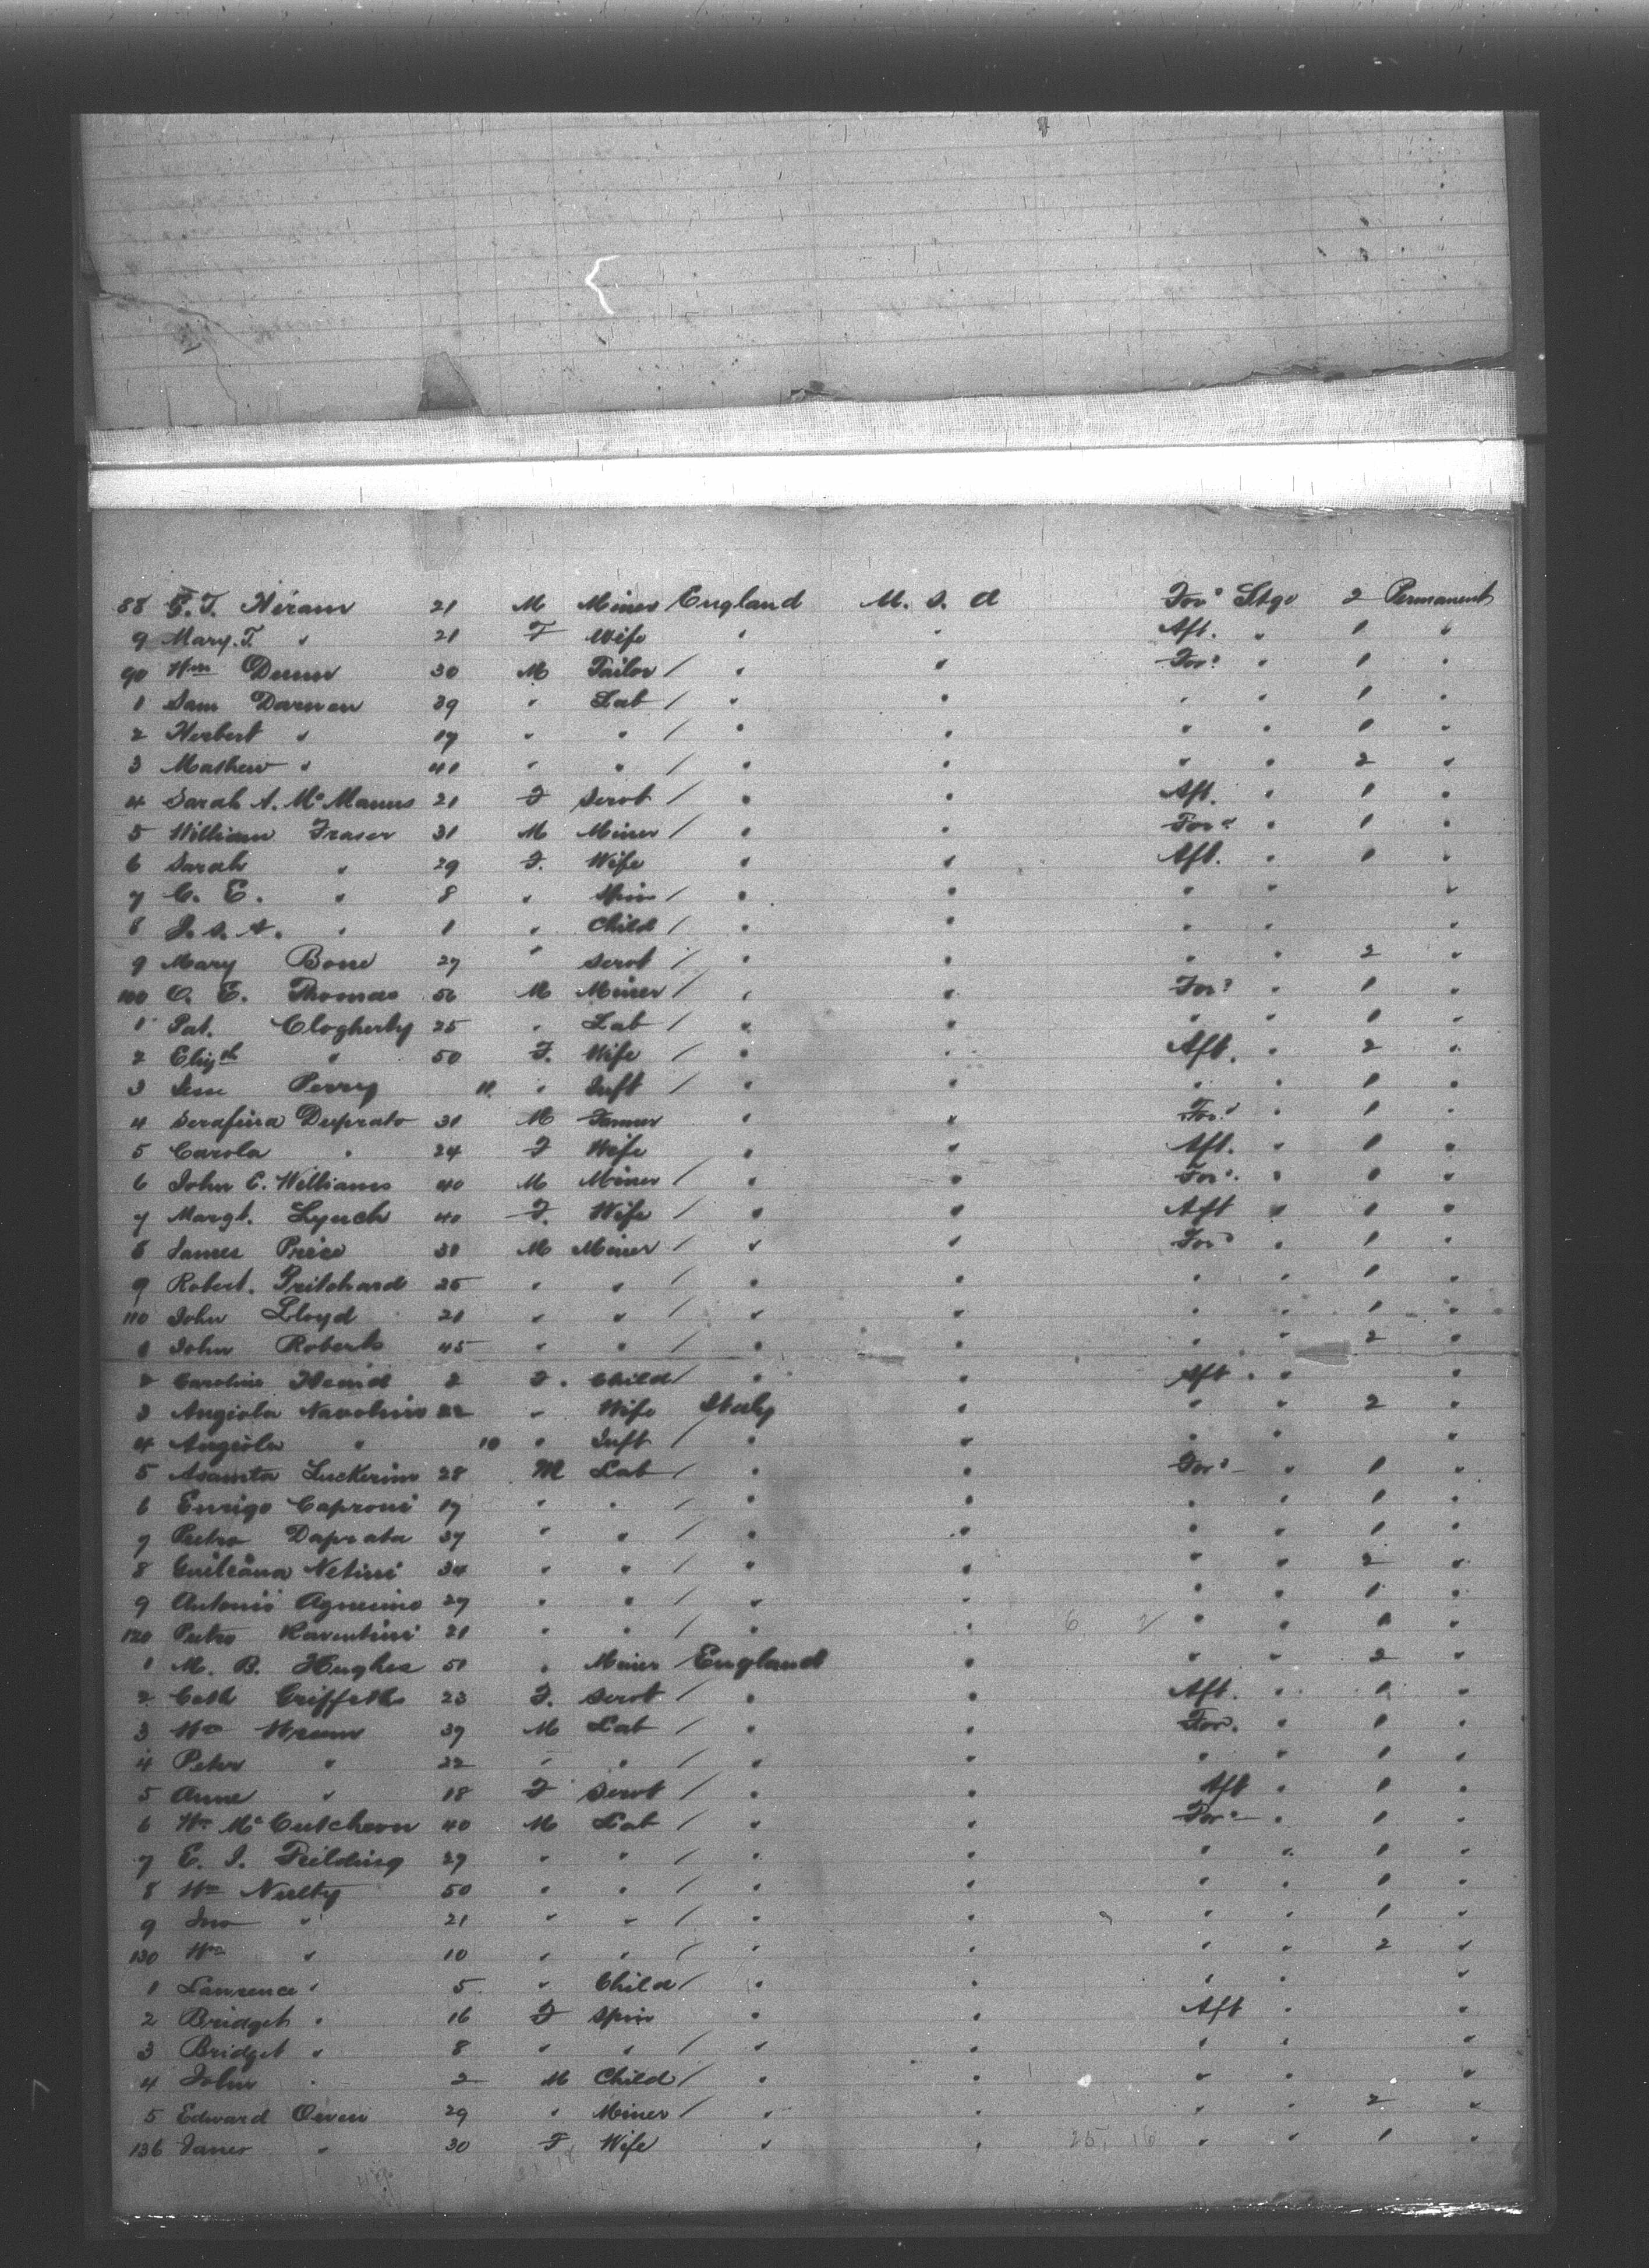 88 G. T. Hiram 21 M Miner England U. S. A For'd Stge 2 Permanent
9 Mary. T. " 21 F Wife " " Aft. " 1 "
90 Wm Dunn 30 M Tailor / " " For'd " 1 "
1 Sam Darnen 39 " Lab / " " " " 1 "
2 Herbert " 19 " " / " " " " 1 "
3 Mathew " 41 " " / " " " " 2 "
4 Sarah A. McManus 21 F Servt / " " Aft. " 1 "
5 William Fraser 31 M Miner / " " For'd " 1 "
6 Sarah " 29 F. Wife " " Aft. " 1 "
7 C. E. " 8 " Spin / " " " " "
8 I. S. A. " 1 " Child / " " " " "
9 Mary Bone 27 " Servt / " " " " 2 "
100 O. E. Thomas 56 M Miner / " " For'd " 1 "
1 Pat. Clogherty 25 " Lab / " " " " 1 "
2 Elizth " 50 F. Wife / " " Aft. " 2 "
3 Jesse Perry 11. " Inft / " " " " 1 "
4 Serafina Duprato 31 M Farmer " " For'd " 1 "
5 Carola " 24 F Wife " " Aft. " 1 "
6 John E. Williams 40 M Miner / " " For'd " 1 "
7 Margt. Lynch 40 F. Wife / " " Aft " 1 "
8 James Price 31 M Miner / " " For'd " 1 "
9 Robert. Pritchard 25 " " / " " " " 1 "
110 John Lloyd 21 " " / " " " " 1 "
1 John Roberts 45 " " / " " " " 2 "
2 Caroline 2 F. Child / " " Aft " " "
3 Angiola Navolino 22 " Wife Italy " " " 2 "
4 Angiola " 10 " Inft / " " " " "
5 Asamta Luckerino 28 M Lab / " " For'd " 1 "
6 Enrigo Caproni 19 " " / " " " " 1 "
7 Pietro Daprata 37 " " / " " " " 1 "
8 Netini 34 " " / " " " " 2 "
9 Antonio Agnesino 29 " " / " " " " 1 "
120 Pietro 21 " " / " " 6 2 " " 1 "
1 M. B. Hughes 51 " Miner / England " " " 2 "
2 Cath Griffeths 23 F. Servt / " " Aft. " 1 "
3 Wm Wrenn 39 M Lab / " " For'd " 1 "
4 Peter " 22 " " / " " " " 1 "
5 Anne " 18 F Servt / " " Aft " 1 "
6 Wm McCutcheon 40 M Lab / " " For'd " 1 "
7 E. I. Feilding 29 " " / " " " " 1 "
8 Wm Nulty 50 " " / " " " " 1 "
9 Jno " 21 " " / " " " " 1 "
130 Wm " 10 " " / " " " " 2 "
1 Lawrence " 5 " Child / " " " " "
2 Bridget " 16 F Spin " " Aft " "
3 Bridget " 8 " " / " " " " "
4 John " 2 M Child / " " " " "
5 Edward Owen 29 " Miner / " " " " 2 "
136 Janes " 30 F Wife " " 25, 16 " " 1 "